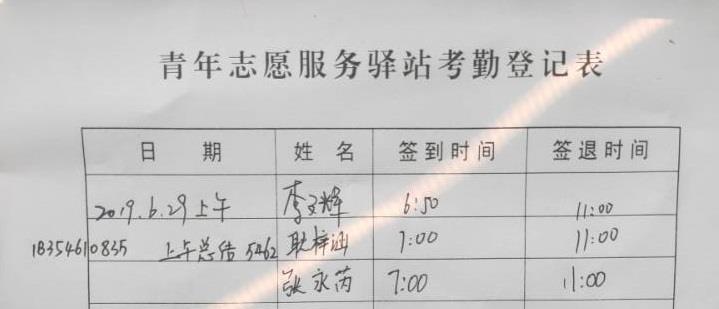 青年志愿服务驿站考勤登记表
日 期 姓 名 签到时间 签退时间
2019.6.29上午 李文辉 6:50 11:00
18354610835 上午总结 5462 耿梓涵 7:00 11:00
张永芮 7:00 11:00